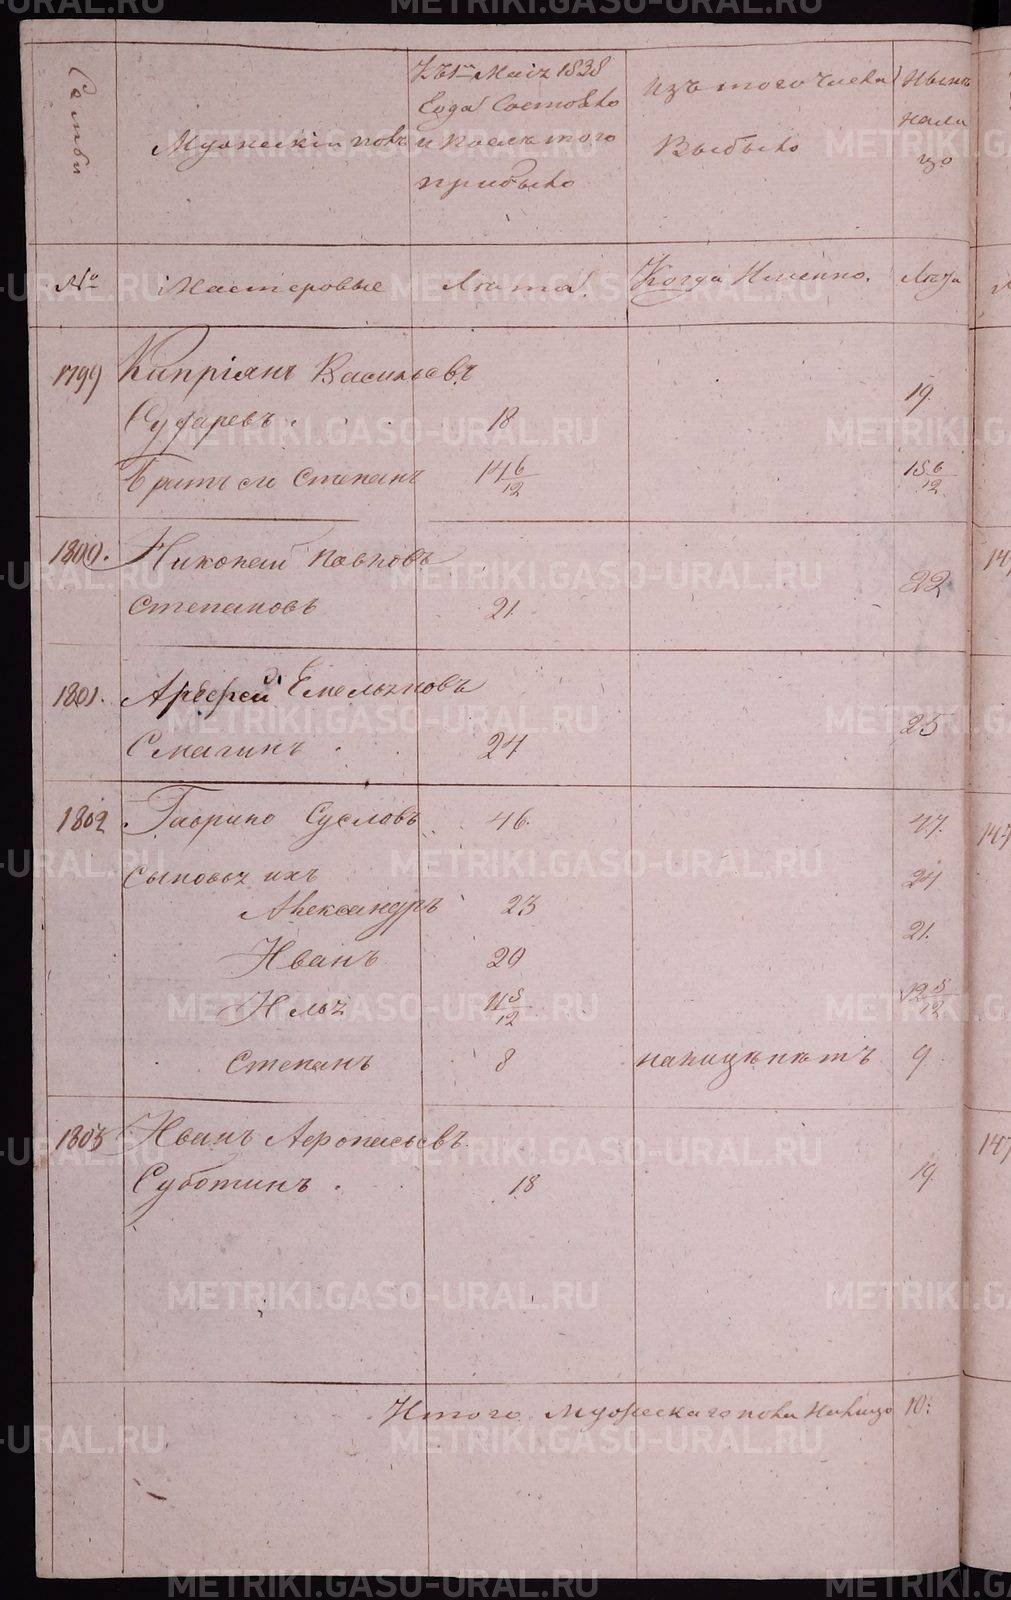 Семьи
Мужескій полъ
Къ 1му Маія 1838
Года Состояло
и послѣ того
прибыло
Изъ того числа
Выбыло
Нынѣ
нали
цо
№
Мастеровые
Лѣта
Когда Именно.
Лѣта
1799 Кипріянъ Васильевъ
Сухаревъ . 18 19.
Братъ его Степанъ 14 6/12 15 6/12
1800. Николай Павловъ
Степановъ 21. 22
1801. Арефей Емельяновъ
Смагинъ . 24 25
1802 Гаврило Сусловъ 46. 47.
Сыновья ихъ
Александръ 23 24
Иванъ 20 21.
Илья 11 5/12 12 5/12
Степанъ 8 налицѣ нѣтъ 9
1803 Иванъ Афонасьевъ
Суботинъ . 18 19.
Итого Мужескаго пола Налицо 10:
METRIKI.GASO-URAL.RU